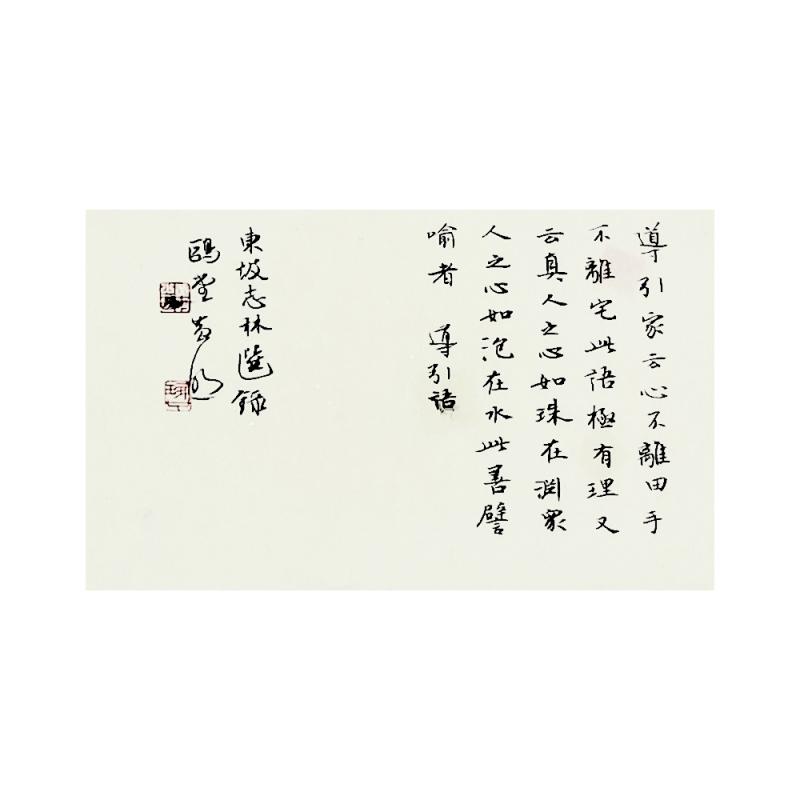 導引家云心不離田手
不離宅此語極有理又
云真人之心如珠在淵眾
人之心如泡在水此善譬
喻者 導引語
東坡志林選錄
鷗堂